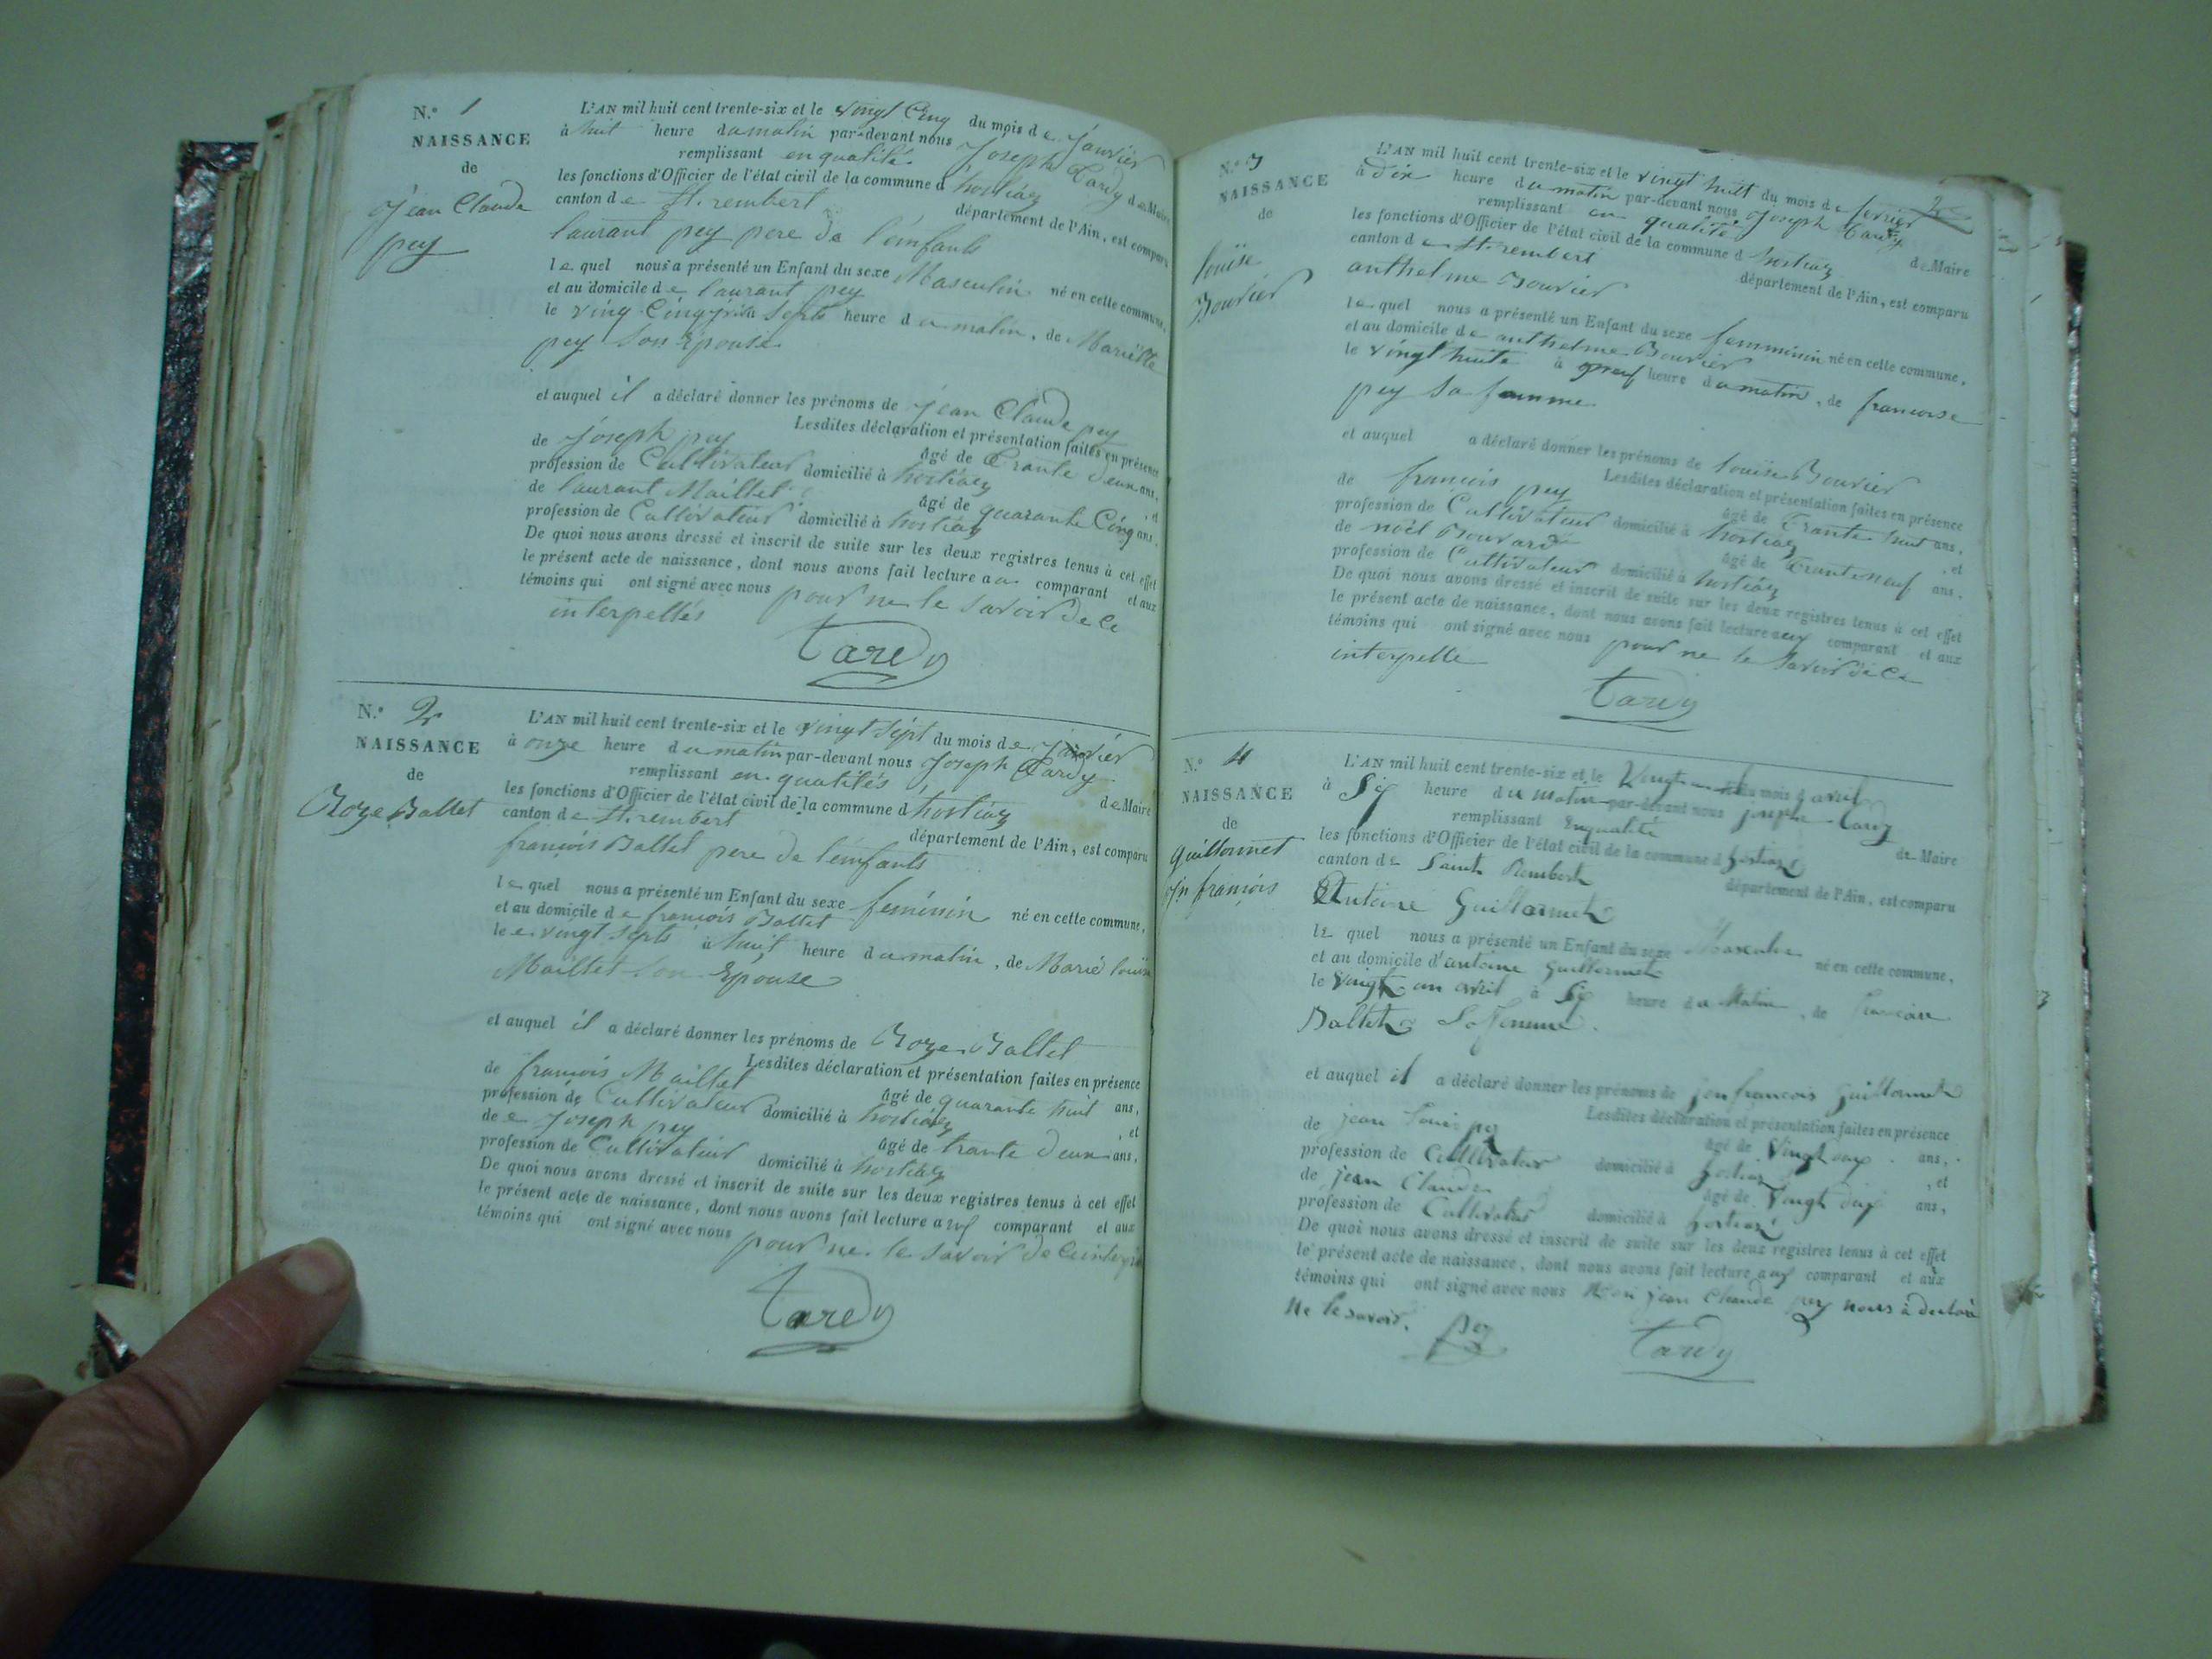 N.° 1
NAISSANCE
de
Jean Claude
pey
L'AN mil huit cent trente-six et le vingt Cinq du mois de Janvier
à huit heure du matin par-devant nous Joseph Tardy
remplissant en qualité de Maire
les fonctions d'Officier de l'état civil de la commune d hostiaz
canton de St. rembert département de l'Ain, est comparu
laurant pey pere de l'enfants
le quel nous a présenté un Enfant du sexe Masculin né en cette commune,
et au domicile de laurant pey
le ving Cinq à Septs heure du matin, de Mariette
pey Son Epouse
et auquel il a déclaré donner les prénoms de Jean Claude pey
Lesdites déclaration et présentation faites en présence
de Joseph pey âgé de Trante deux ans,
profession de Cultivateur domicilié à hostiaz, et
de laurant Maillet âgé de quarante Cinq ans,
profession de Cultivateur domicilié à hostiaz
De quoi nous avons dressé et inscrit de suite sur les deux registres tenus à cet effet
le présent acte de naissance, dont nous avons fait lecture au comparant et aux
témoins qui ont signé avec nous pour ne le Savoir de ce
interpellés
Tardy
N.° 2
NAISSANCE
de
Roze Ballet
L'AN mil huit cent trente-six et le vingt Sept du mois de Janvier
à onze heure du matin par-devant nous Joseph Tardy
remplissant en qualités de Maire
les fonctions d'Officier de l'état civil de la commune d hostiaz
canton de St. rembert département de l'Ain, est comparu
françois Ballet pere de l'enfants
le quel nous a présenté un Enfant du sexe feminin né en cette commune,
et au domicile de françois Ballet
le vingt Septs à huit heure du matin, de Marie louise
Maillet Son Epouse
et auquel il a déclaré donner les prénoms de Roze Ballet
Lesdites déclaration et présentation faites en présence
de françois Maillet âgé de quarante huit ans,
profession de Cultivateur domicilié à hostiaz, et
de Joseph pey âgé de trante deux ans,
profession de Cultivateur domicilié à hostiaz
De quoi nous avons dressé et inscrit de suite sur les deux registres tenus à cet effet
le présent acte de naissance, dont nous avons fait lecture aux comparant et aux
témoins qui ont signé avec nous pour ne le Savoir de ce
Tardy
2
N.° 3
NAISSANCE
de
louise
Bouvier
L'AN mil huit cent trente-six et le vingt huit du mois de fevrier
à dix heure du matin par-devant nous Joseph Tardy
remplissant en qualité de Maire
les fonctions d'Officier de l'état civil de la commune d hostiaz
canton de St. rembert département de l'Ain, est comparu
anthelme Bouvier
le quel nous a présenté un Enfant du sexe femminin né en cette commune,
et au domicile de anthelme Bouvier
le vingt huite à neuf heure du matin, de francoise
pey Sa famme
et auquel a déclaré donner les prénoms de louise Bouvier
Lesdites déclaration et présentation faites en présence
de francois pey âgé de Trante huit ans,
profession de Cultivateur domicilié à hostiaz, et
de noël Bouvard âgé de Trante neuf ans,
profession de Cultivateur domicilié à hostiaz
De quoi nous avons dressé et inscrit de suite sur les deux registres tenus à cet effet
le présent acte de naissance, dont nous avons fait lecture aux comparant et aux
témoins qui ont signé avec nous pour ne le Savoir de ce
interpelle
Tardy
N.° 4
NAISSANCE
de
guillermet
jn françois
L'AN mil huit cent trente-six et le Vingt un du mois d avril
à Six heure du matin par-devant nous joseph tardy
remplissant Enqualité de Maire
les fonctions d'Officier de l'état civil de la commune d hostiaz
canton de Saint Rembert département de l'Ain, est comparu
Antoine Guillermet
le quel nous a présenté un Enfant du sexe Masculin né en cette commune,
et au domicile d'antoine guillermet
le Vingt un avril à Six heure du Matin, de francoise
Ballet Sa femme.
et auquel il a déclaré donner les prénoms de jean francois guillermet
Lesdites déclaration et présentation faites en présence
de jean Louis pey âgé de Vingt ans,
profession de Cultivateur domicilié à hostiaz, et
de jean Claude âgé de Vingt ans,
profession de Cultivateur domicilié à hostiaz
De quoi nous avons dressé et inscrit de suite sur les deux registres tenus à cet effet
le présent acte de naissance, dont nous avons fait lecture aux comparant et aux
témoins qui ont signé avec nous Non jean Claude pey nous à declaré
Ne le savoir.
pey Tardy